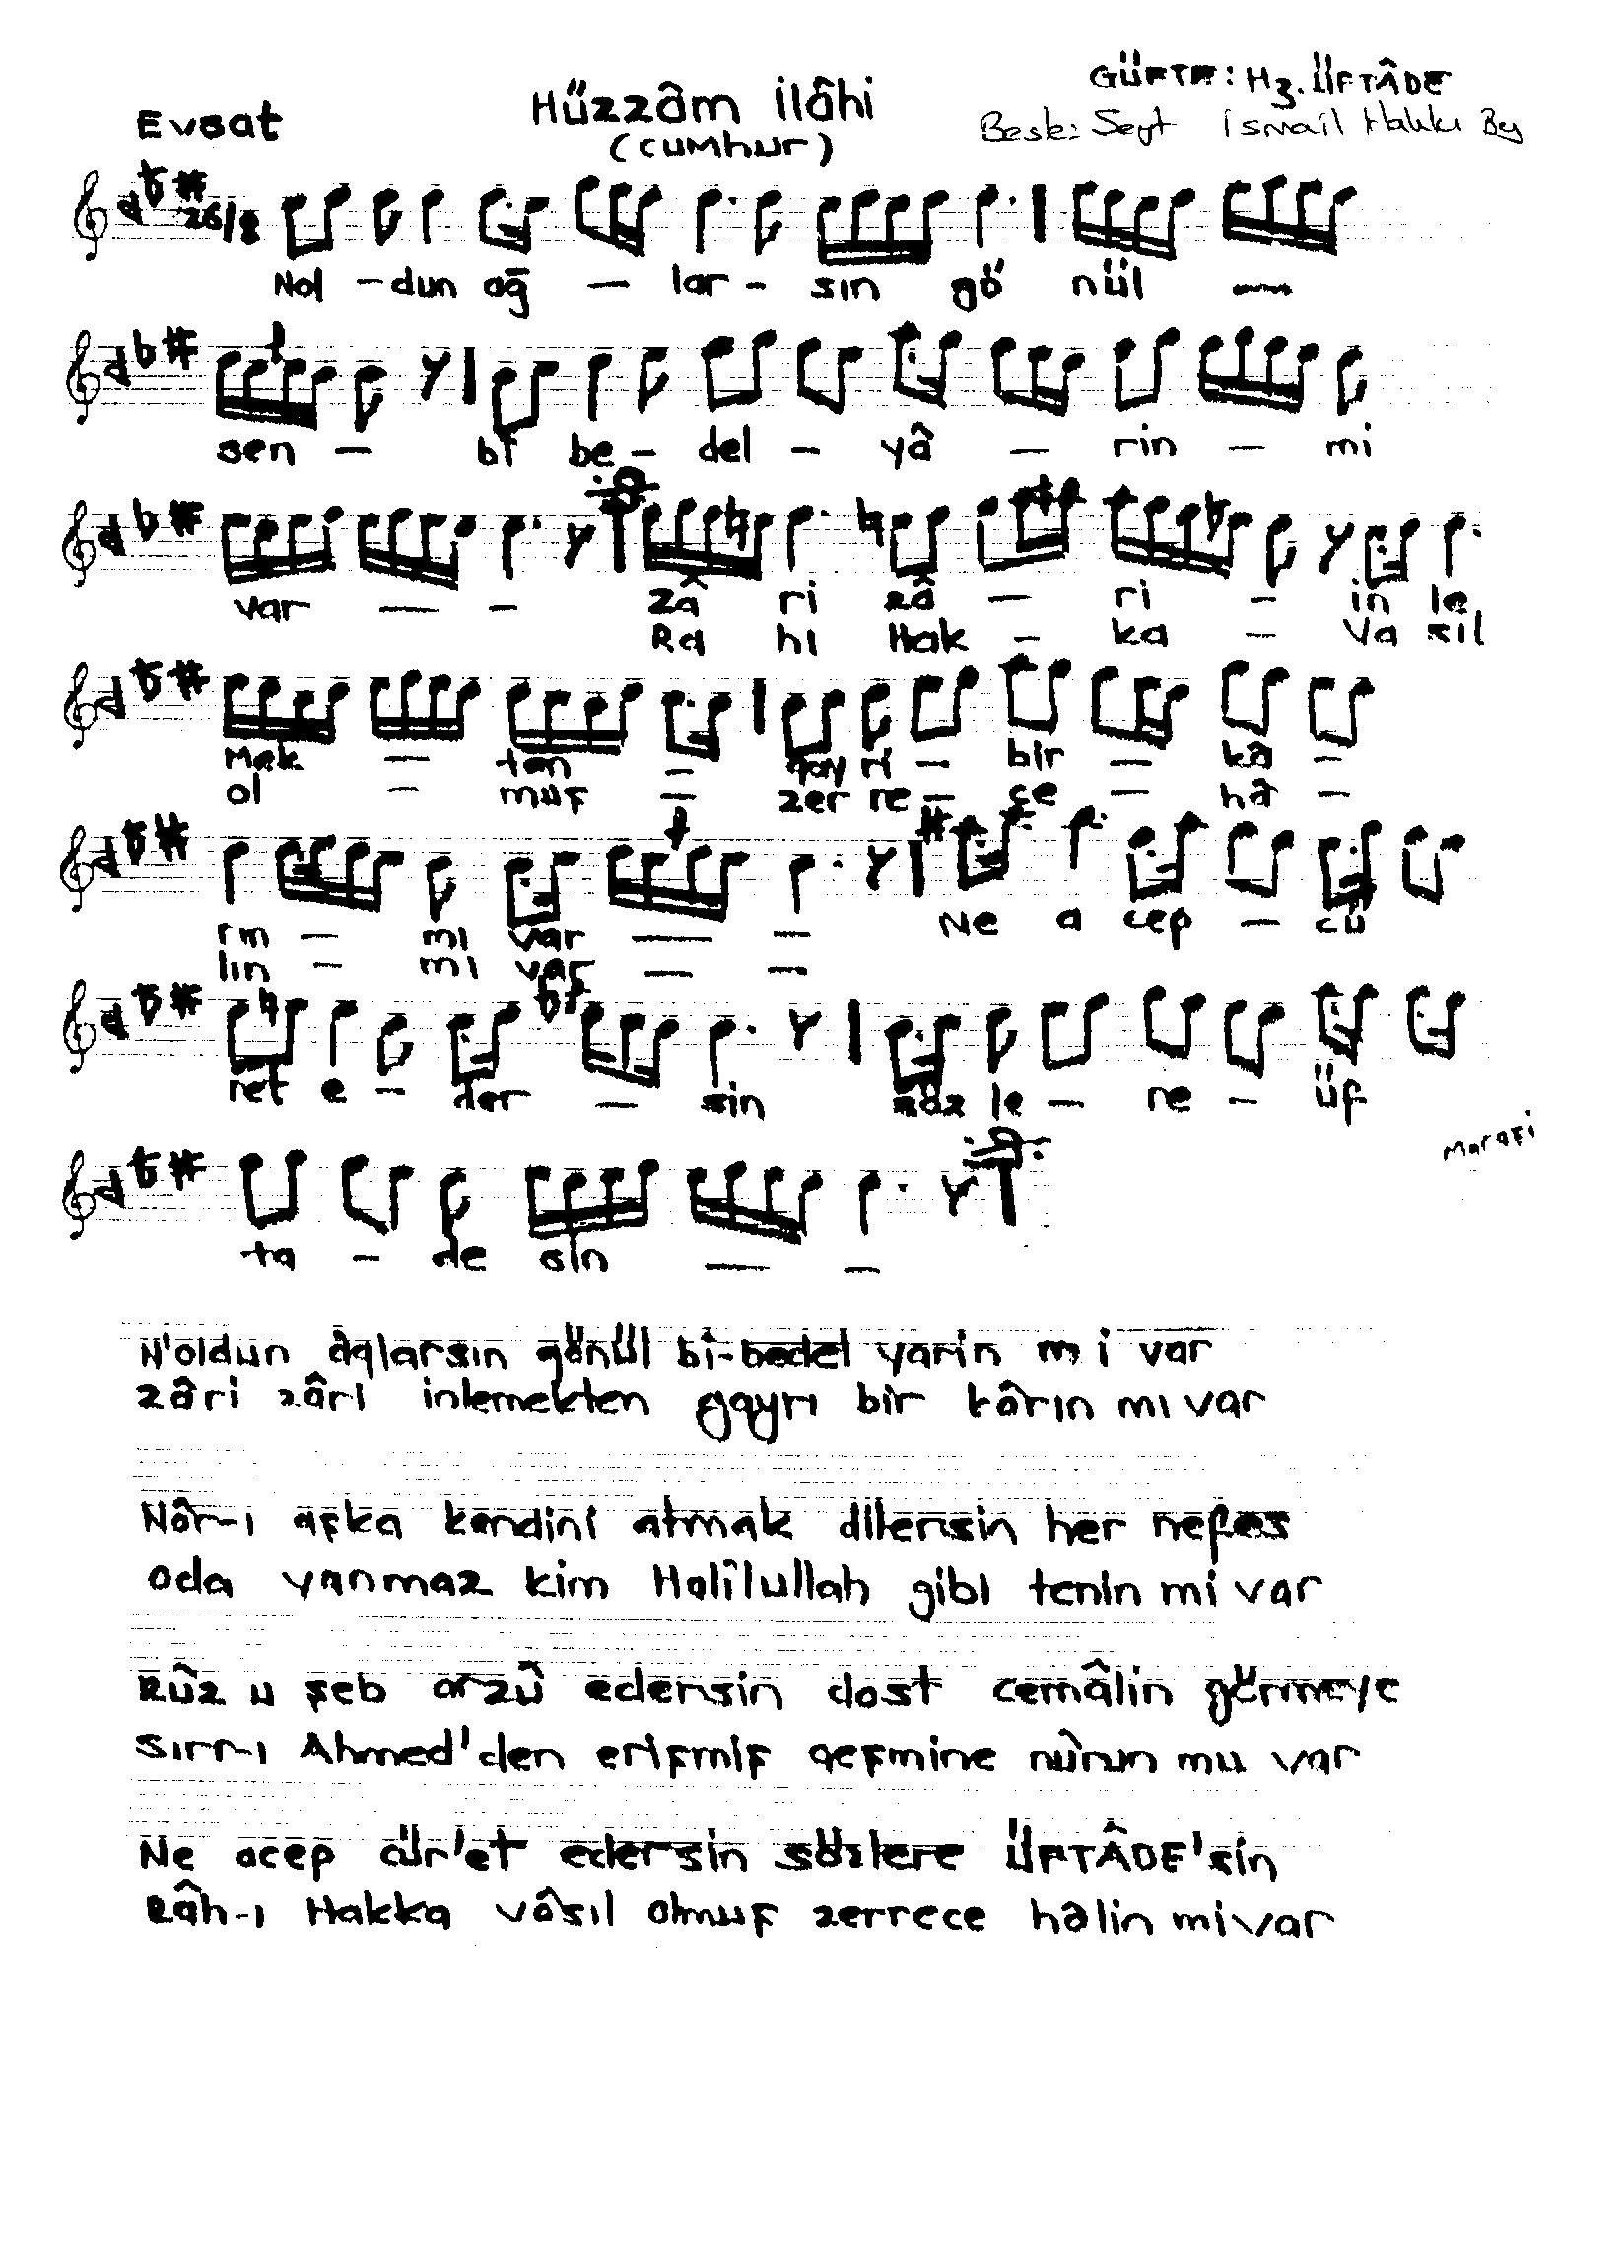 Evsat
Hüzzâm İlâhi
(cumhur)
GÜFTE: Hz. ÜFTÂDE
Beste: Seyt İsmail Hakkı Bey
26/8
Nol - dun ağ — lar - sın gö nül —
sen — bi be - del - yâ — rin — mi
var — - zâ ri zâ — ri - in le
Ra hı Hak - ka - va sıl
mek — ten - gay rı - bir — kâ -
ol - muş — zer re - ce — hâ -
rın — mı var — - Ne a cep — cü
lın - mı var — -
ret e - der — sin söz le - re - üf
Maraşi
ta - de sin — -
N'oldun ağlarsın gönül bî-bedel yarin mi var
zâri zârı inlemekten gayrı bir kârın mı var
Nâr-ı aşka kendini atmak dilersin her nefes
oda yanmaz kim Halîlullah gibi tenin mi var
Rûz u şeb arzû edersin dost cemâlin görmeye
Sırr-ı Ahmed'den erişmiş çeşmine nûrun mu var
Ne acep cür'et edersin sözlere ÜFTÂDE'sin
Râh-ı Hakka vâsıl olmuş zerrece hâlin mi var